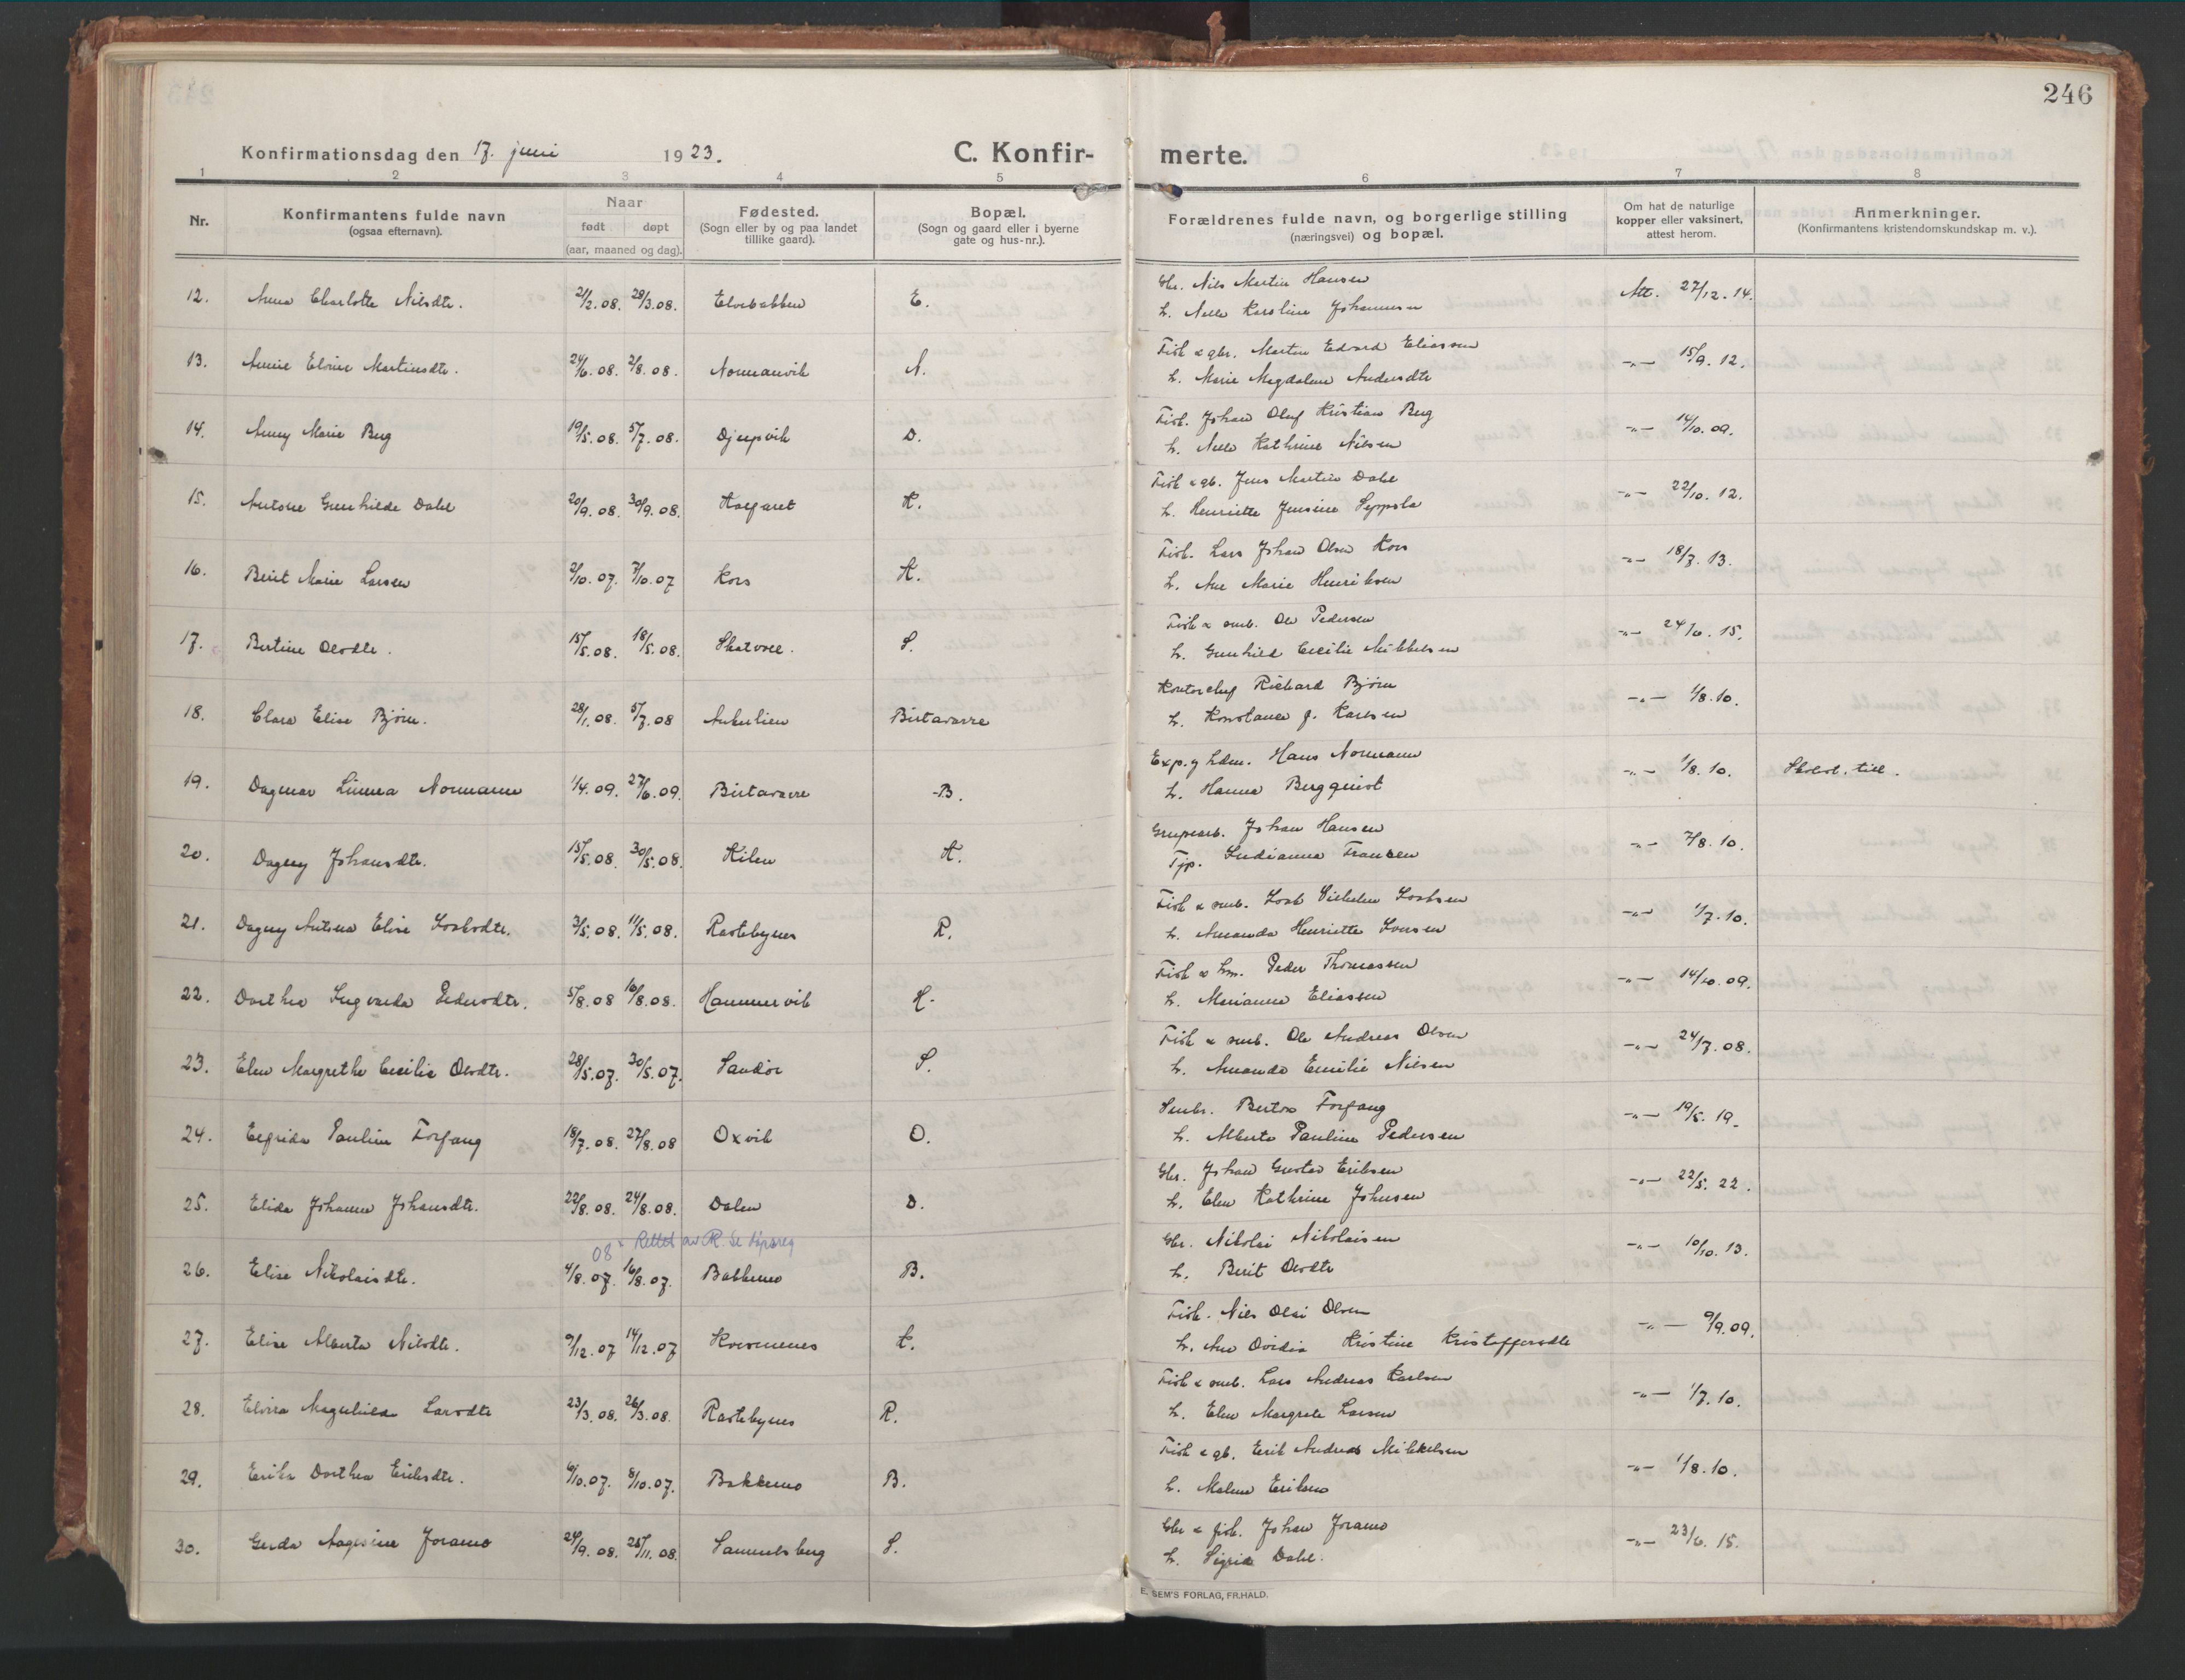 246
Konfirmationsdag den 17. juni 1923.
C. Konfirmerte.
1 2 3 4 5 6 7 8
Nr.
Konfirmantens fulde navn
(ogsaa efternavn).
Naar
født døpt
(aar, maaned og dag).
Fødested.
(Sogn eller by og paa landet
tillike gaard).
Bopæl.
(Sogn og gaard eller i byerne
gate og hus-nr.).
Forældrenes fulde navn, og borgerlige stilling
(næringsvei) og bopæl.
Om hat de naturlige
kopper eller vaksinert,
attest herom.
Anmerkninger.
(Konfirmantens kristendomskundskap m. v.).
12. Anna Charlotte Nilsdtr. 21/2.08. 28/3.08. Elvebakken E. Gbr. Nils Martin Hansen Att. 27/12.14.
h. Karoline Johannesen
13. Elvine Martinsdtr. 24/6.08. 2/8.08. Normanvik N. Fisk & gbr. Martin Edvard Eliassen -"- 15/9.12.
h. Marie Magdalene Andersdtr
14. Anny Marie Berg 19/5.08. 5/7.08. Djupvik D. Fisk. Johan Oluf Kristian Berg -"- 14/10.09.
h. Kathrine Nilsen
15. Gunhilde Dahl 20/9.08. 30/9.08. K. Fisk & gb. Jens Martin Dahl -"- 22/10.12.
h. Henriette Jensine Seppola
16. Berit Marie Larsen 2/10.07. 7/10.07 Kors K. Fisk. Lars Johan Olsen Kors -"- 18/7.13.
h. Ane Marie Henriksen
17. Bertine Olsdtr. 15/5.08. 18/5.08. Skatvoll. S. Fisk & smb. Ole Pedersen -"- 24/6.15.
h. Gunhild Cecilie Mikkelsen
18. Clara Elise Bjørn. 28/1.08. 5/7.08 Ankerlien Birtavarre Kontorchef Richard Bjørn -"- 1/8.10.
h. Konstance J. Karlsen
19. Dagmar Linnea Normann 1/4.09. 27/6.09. Birtavarre B. Exp. & hdm. Hans Normann -"- 1/8.10. Skold. till.
h. Hanna Bergquist
20. Dagny Johansdtr. 15/5.08. 30/5.08. Kilen K. Grupearb. Johan Hansen -"- 7/8.10.
Tjp. Indianna Fransen
21. Dagny Elise Isaksdtr. 3/5.08. 11/5.08. Rastebynes R. Fisk & smb. Isak Vilhelm Isaksen -"- 1/7.10.
h. Amanda Henriette Jonsen
22. Dorthea Ingvarda Pedersdtr. 5/8.08 16/8.08. Hammervik H. Fisk & hm. Peder Thomassen -"- 14/10.09.
h. Marianna Eliassen
23. Elen Margrethe Cecilie Olsdtr. 28/5.07. 30/5.07. Sandør S. Fisk & smb. Ole Andreas Olsen -"- 24/7.08.
h. Amanda Emilie Nilsen
24. Elfrida Pauline Forfang 18/7.08. 27/8.08 Oxvik O. Smbr. Berton Forfang -"- 19/5.19.
h. Alberte Pauline Pedersen
25. Elida Johanne Johansdtr. 22/8.08. 24/8.08. Dalen D. Gbr. Johan Gustav Eriksen -"- 22/5.22.
h. Elen Kathrine Johnsen
08 × Rettet av RR. Se dåpsreg
26. Elise Nikolaisdtr. 4/8.07. 16/8.07. Bakkemo B. Gbr. Nikolai Nikolaisen -"- 10/10.13.
h. Berit Olsdtr
27. Elise Alberta Nilsdtr. 9/12.07 14/12.07 Kvesmenes K. Fisk. Nils Olai Olsen -"- 9/9.09.
h. Ane Ovidia Kristine Kristoffersdtr
28. Elvira Magnhilda Larsdtr 23/3.08. 26/3.08. Rastebynes R. Fisk & smb. Lars Andreas Karlsen -"- 1/7.10.
h. Elen Margrete Larsen
29. Erika Dorthea Eriksdtr. 6/10.07. 8/10.07. Bakkemo B. Fisk & gb. Erik Andreas Mikkelsen -"- 1/8.10.
h. Malene Eriksen
30. Gerda Aagesine Joramo 24/9.08. 25/11.08. Samuelsberg S. Gbr & fisk. Johan Joramo -"- 23/6.15.
h. Sigrid Dahl.
E. SEM'S FORLAG, FR.HALD.